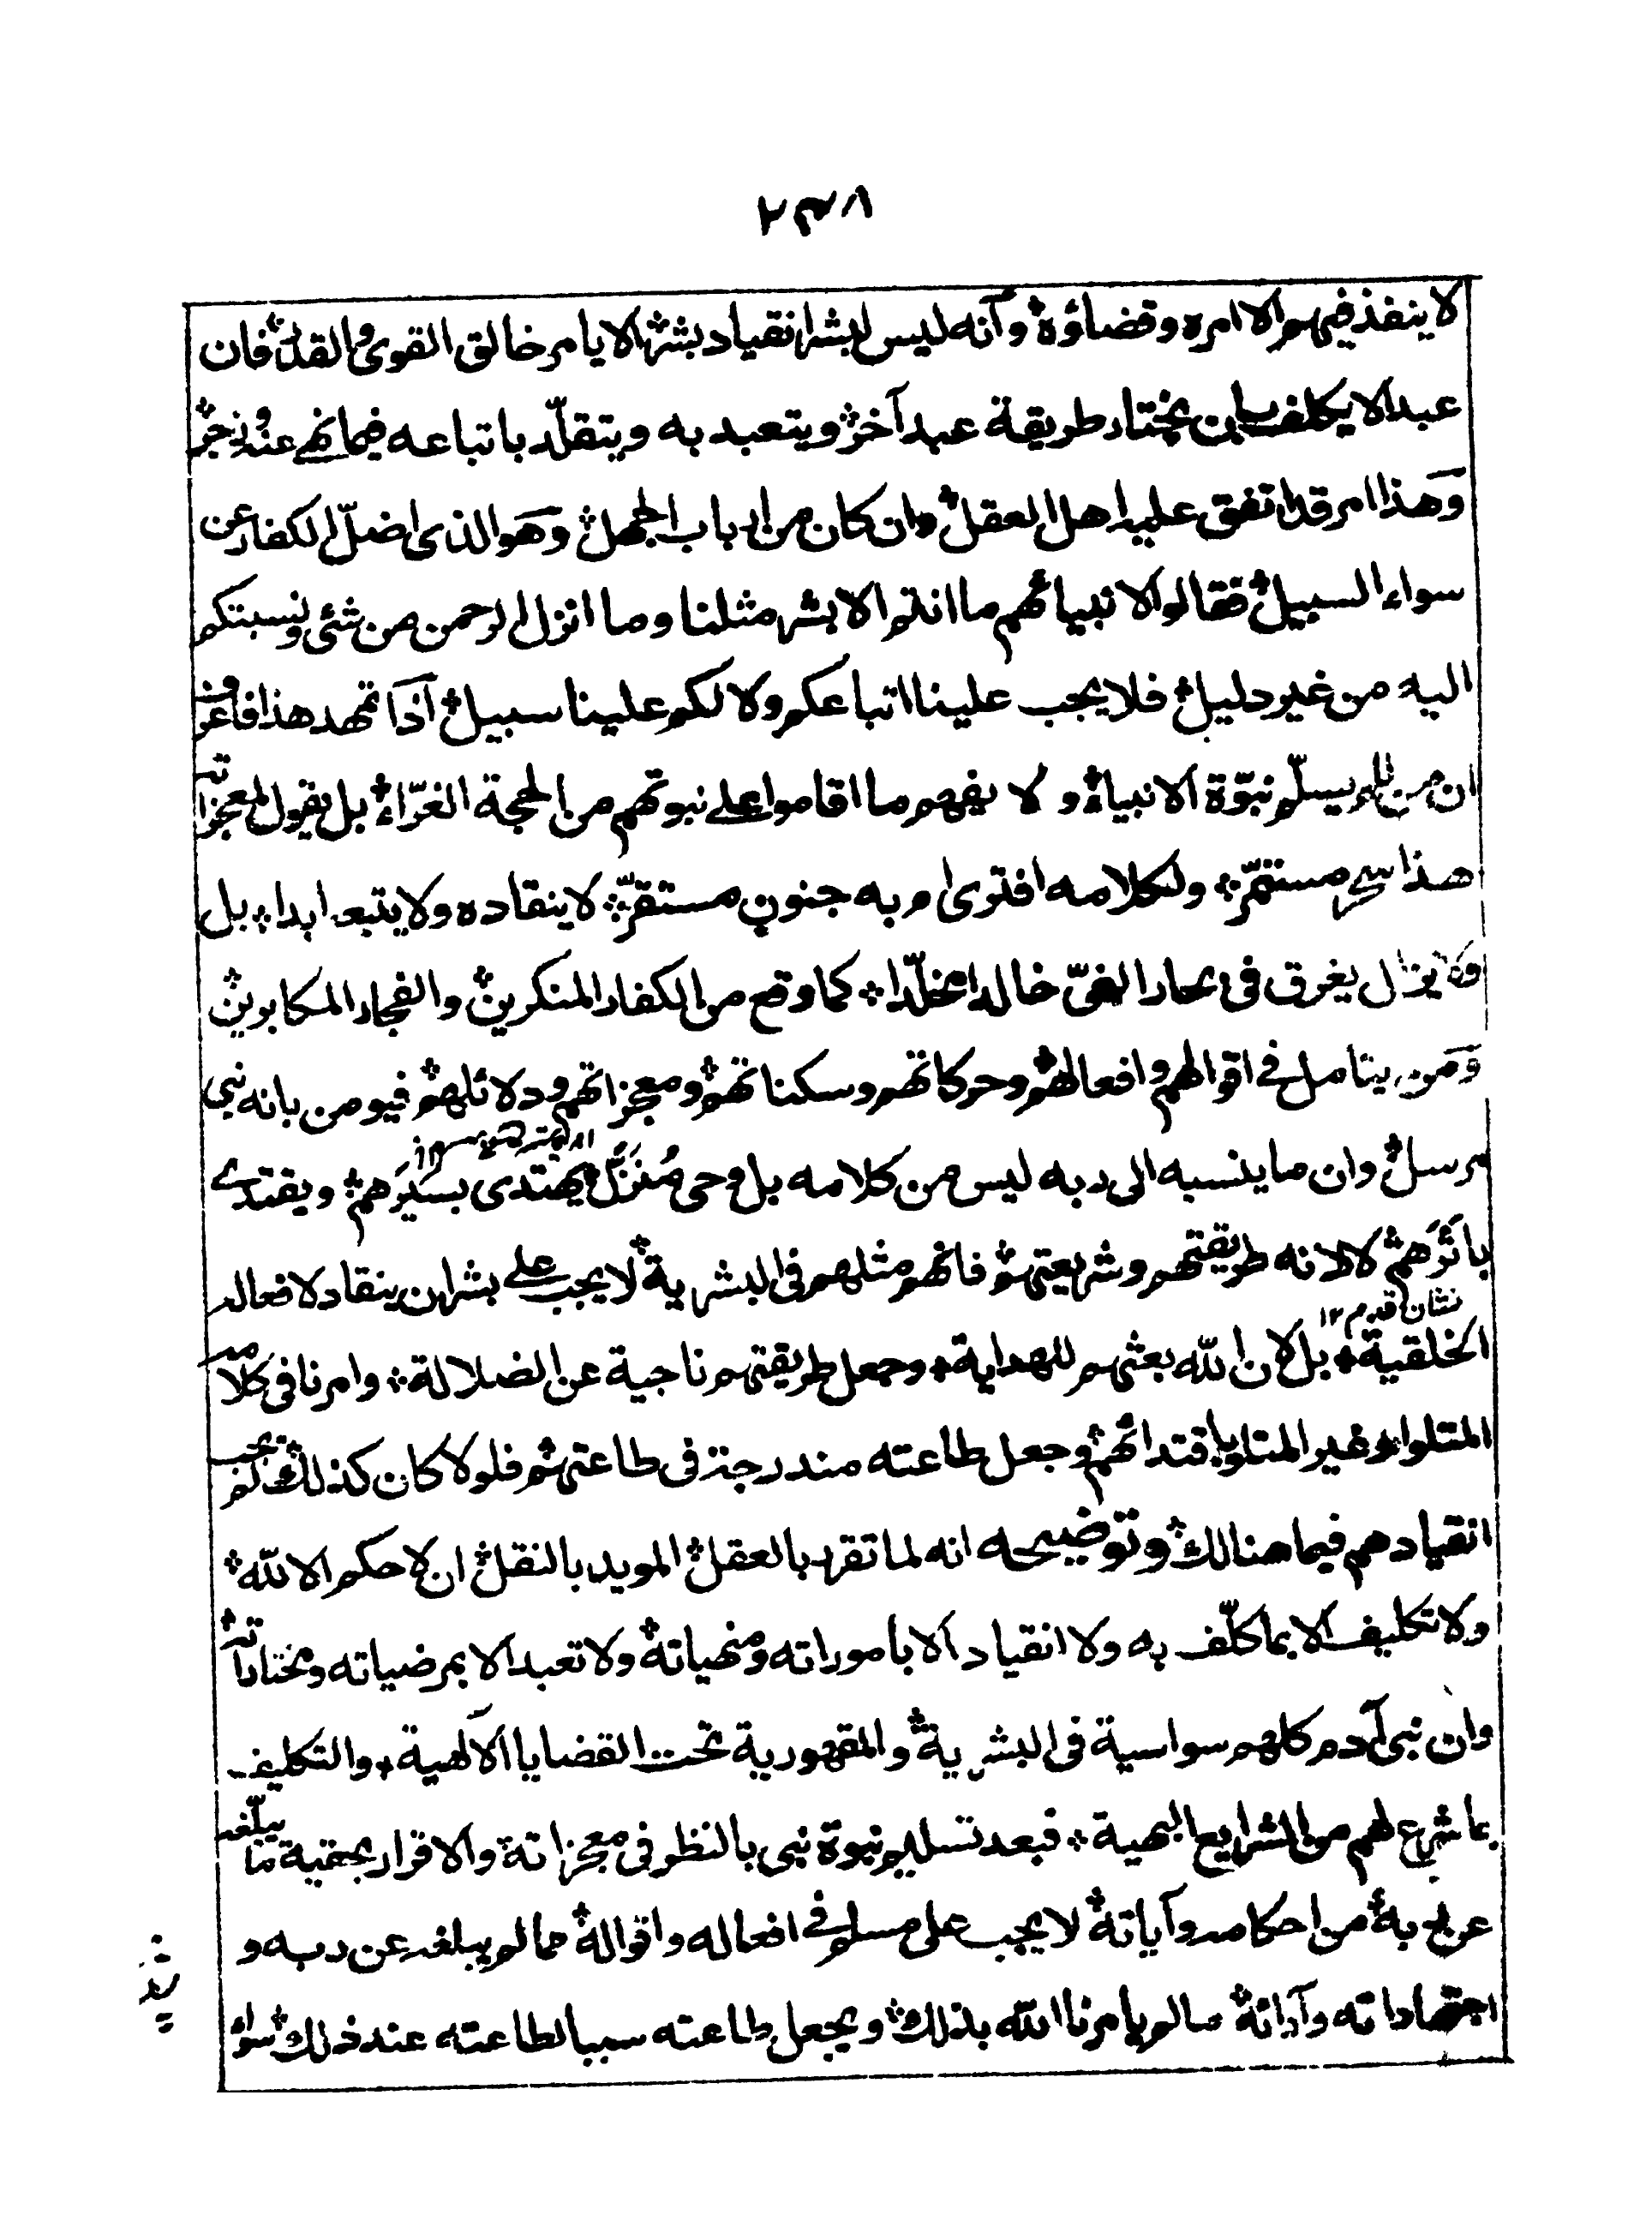 ٢٣٨
لا ينفذ فيهم الا امره وقضاؤه وآنه ليس لبشر انقياد بشر الا يامر خالق القوى والقدر فان
عبدا لا يكلف بان يختار طريقة عبد آخر ويتعبد به ويتقلّد باتباعه فيما نهى عنه وزجر
وهذا امر قد اتفق عليه اهل العقل وان كان من ارباب الجهل وهو الذى اضلّ الكفار عن
سواء السبيل فقالوا لا نبيائهم ما انتم الا بشر مثلنا وما انزل الرحمن من شئ ونسبتكم
اليه من غير دليل فلا يجب علينا اتباعكم ولا لكم علينا سبيل اذا تمهد هذا فاعرف
ان من لم يسلّم نبوّة الانبياء ولا يفهم ما اقاموا على نبوتهم من الحجة الغرّاء بل يقول لمعجزاته
هذا سحر مستمرّ ولكلامه افترى ام به جنون مستقرّ لا ينقاده ولا يتبعه ابدا بل
ولا يزال يغرق فى بحار الغىّ خالدا مخلّدا كما وقع من الكفار المنكرين والفجار المكابرين
ومن يتامل فى اقوالهم وافعالهم وحركاتهم وسكناتهم ومعجزاتهم ودلائلهم فيومن بانه نبى
مرسل وان ما ينسبه الى ربه ليس من كلامه بل وحى مُنَزَّل يهتدى بسيرهم ويقتدى
باثرهم لا لانه طريقتهم وشريعتهم فانهم مثلهم فى البشرية لا يجب على بشر ان ينقاد لافعاله
نشان قدم ١٢
الخلقية بل لان الله بعثهم للهداية وجعل طريقتهم ناجية عن الضلالة وامرنا فى كلامه
المتلو او غير المتلو باقتدائهم وجعل طاعته مندرجة فى طاعتهم فلولا كان كذلك لم يجب
انقيادهم فيما هنالك وتوضيحه انه لما تقرر بالعقل المويد بالنقل ان لا حكم الا لله
ولا تكليف الا بما كلّف به ولا انقياد الا باموراته ومنهياته ولا تعبد الا بمرضياته ومختاراته
وان نبى آدم كلهم سواسية فى البشرية والمقهورية تحت القضايا الالهية والتكليف
بما شرع لهم من الشرايع البهية فبعد تسليم نبوة نبى بالنظر فى معجزاته والاقرار بحقية ما يبلّغه
عن ربه من احكامه وآياته لا يجب على مسلم فى افعاله واقواله مما لم يبلغه عن ربه و
اجتهاداته وآرائه ما لم يامرنا الله بذلك ويجعل طاعته سببا لطاعته عند ذلك سواء